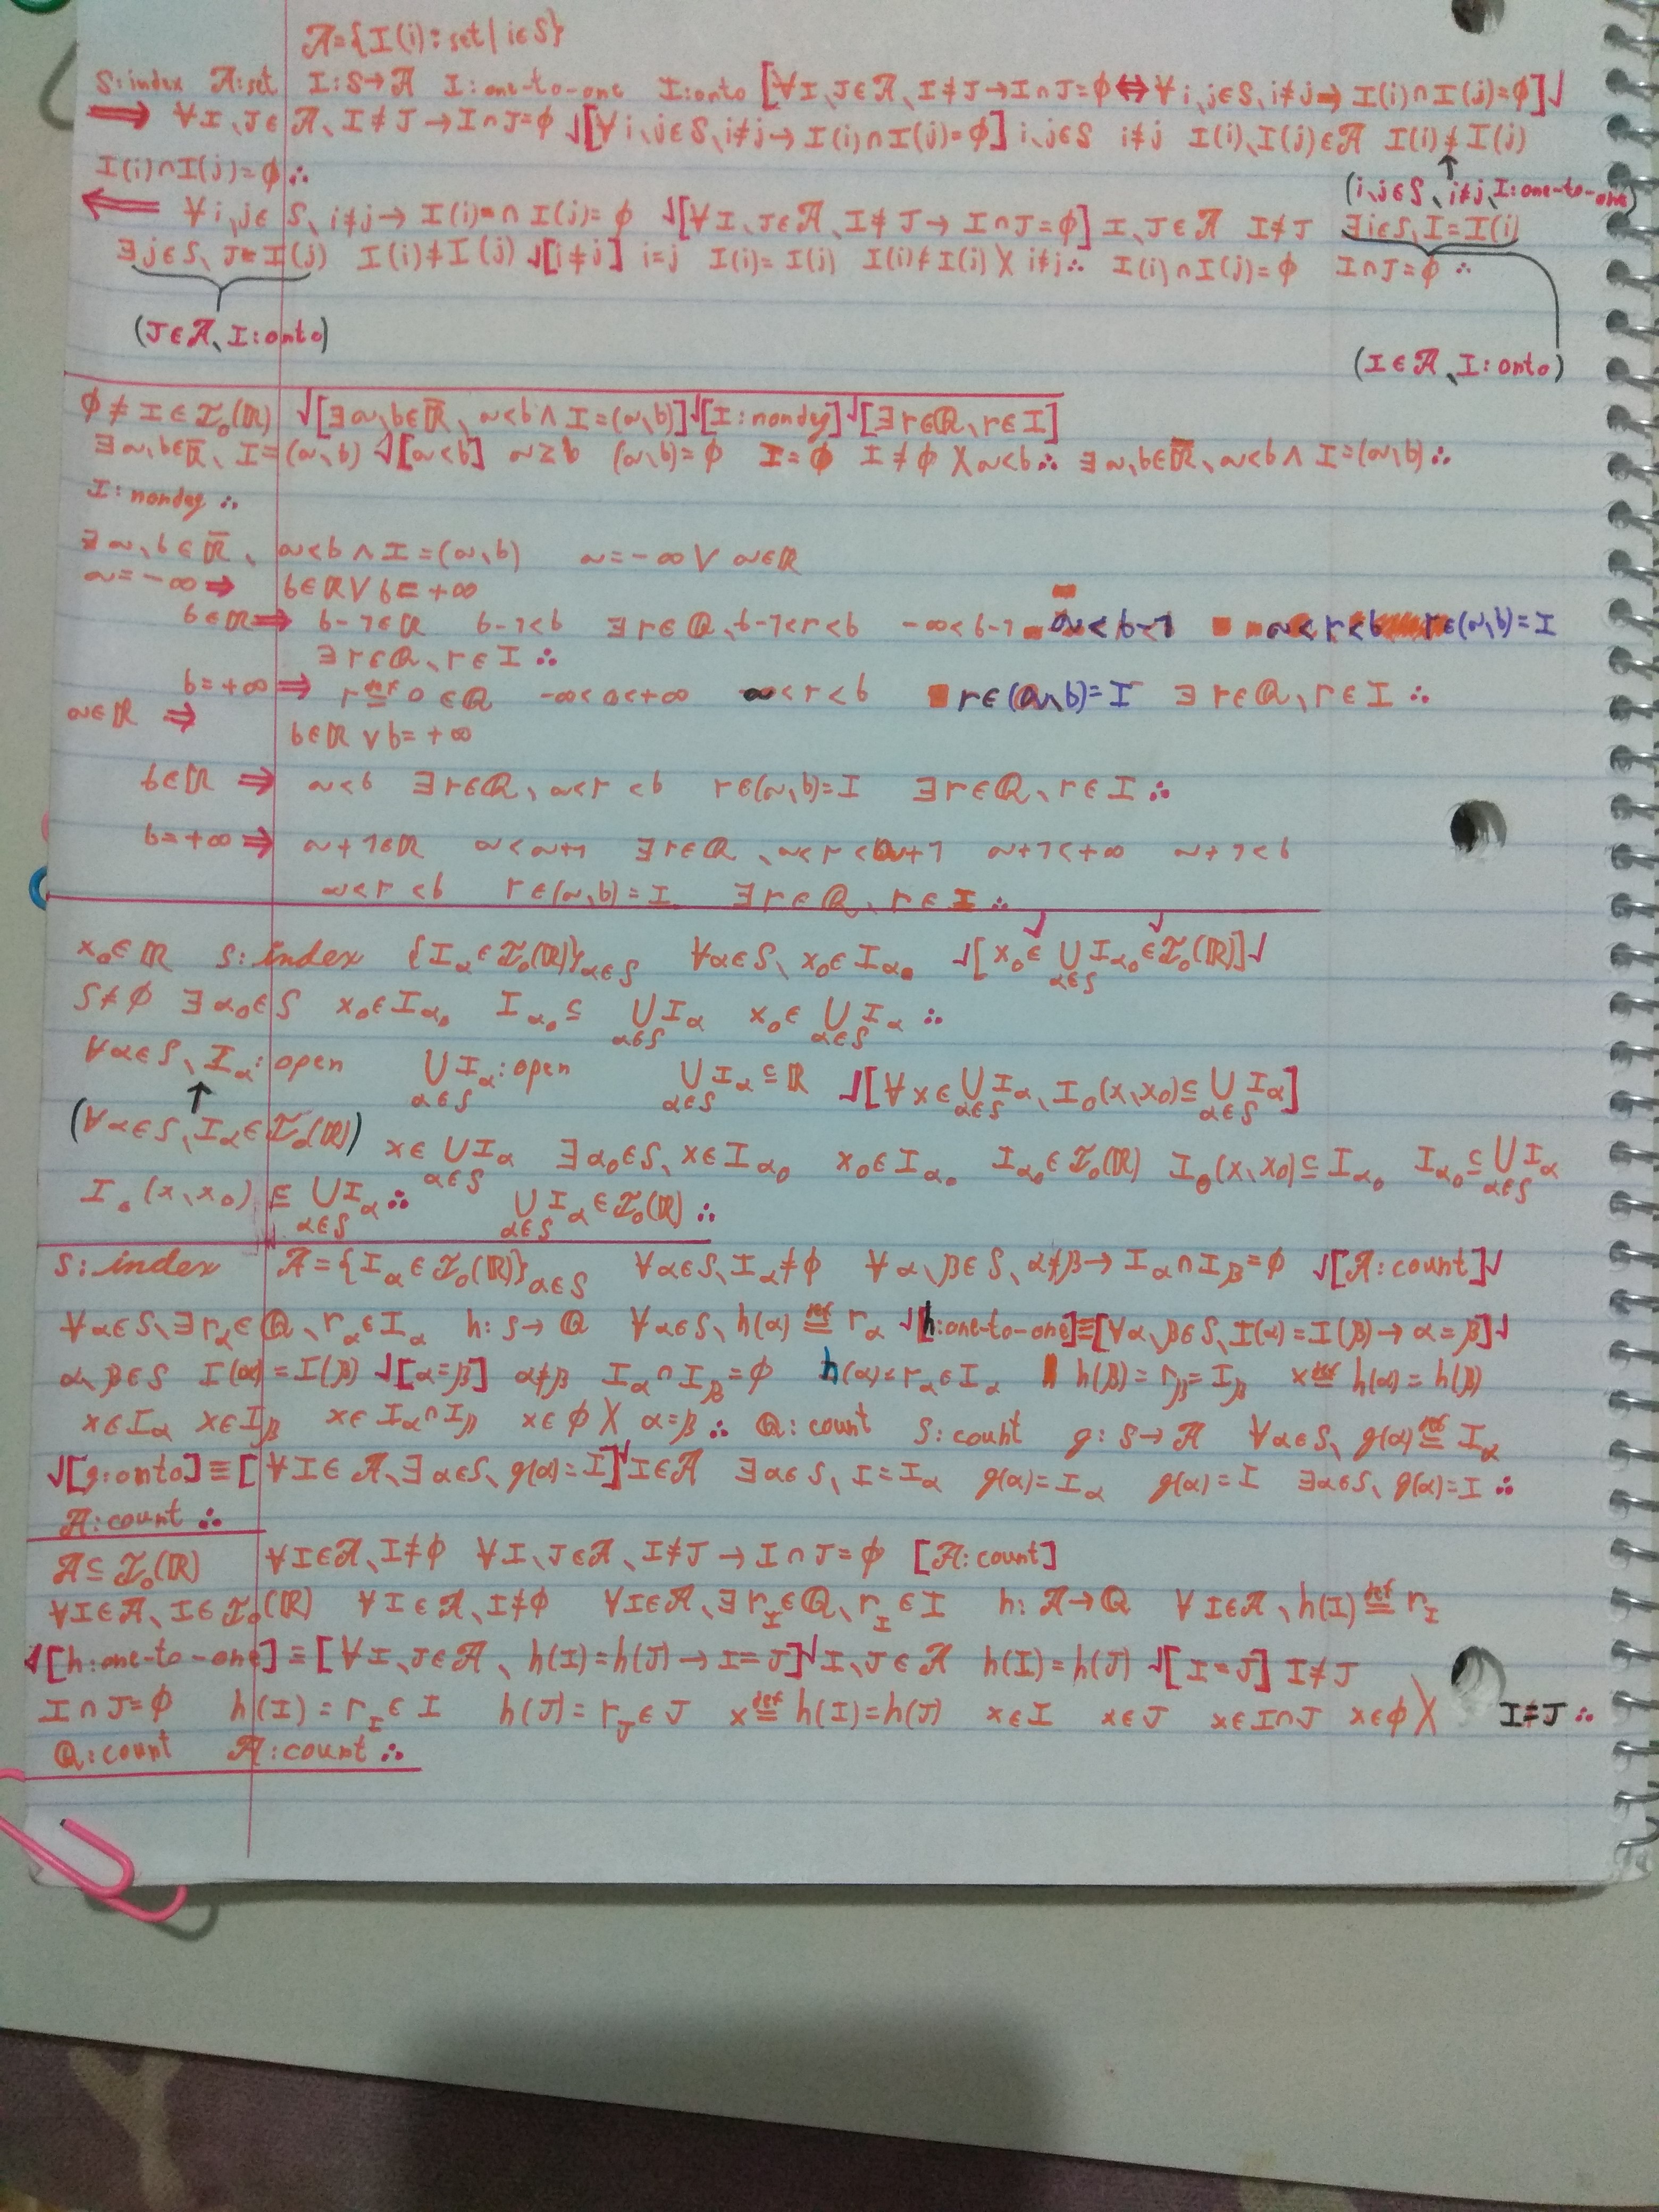 𝒜={I(i):set| i∈S}
S:index 𝒜:set I:S→𝒜 I:one-to-one I:onto [∀I、J∈𝒜、I≠J→I∩J=ϕ⇔∀i、j∈S、i≠j→ I(i)∩I(j)=ϕ]√
⟹ ∀I、J∈𝒜、I≠J→I∩J=ϕ √[∀i、j∈S、i≠j→ I(i)∩I(j)=ϕ] i、j∈S i≠j I(i)、I(j)∈𝒜 I(i)≠I(j)
I(i)∩I(j)=ϕ∴
↑
(i、j∈S、i≠j、I:one-to-one)
⟸ ∀i、j∈S、i≠j→ I(i)=∩I(j)=ϕ √[∀I、J∈𝒜、I≠J→I∩J=ϕ] I、J∈𝒜 I≠J ∃i∈S、I=I(i)
∃j∈S、J=I(j) I(i)≠I(j) √[i≠j] i=j I(i)=I(j) I(i)≠I(j) X i≠j∴ I(i)∩I(j)=ϕ I∩J=ϕ∴
(J∈𝒜、I:onto)
(I∈𝒜、I:onto)
ϕ≠I∈ℐₒ(ℝ) √[∃a、b∈ℝ̅、a<b∧I=(a、b)]√[I:nondeg]√[∃r∈ℚ、r∈I]
∃a、b∈ℝ̅、I=(a、b) √[a<b] a≥b (a、b)=ϕ I=ϕ I≠ϕ X a<b∴ ∃a、b∈ℝ̅、a<b∧I=(a、b)∴
I:nondeg∴
∃a、b∈ℝ̅、a<b∧I=(a、b) a=-∞∨a∈ℝ
a=-∞⇒ b∈ℝ∨b=+∞
b∈ℝ⇒ b-1∈ℝ b-1<b ∃r∈ℚ、b-1<r<b -∞<b-1 a<b-1 a<r<b r∈(a、b)=I
∃r∈ℚ、r∈I∴
b=+∞⇒ r≝0∈ℚ -∞<0<+∞ a<r<b r∈(a、b)=I ∃r∈ℚ、r∈I∴
a∈ℝ⇒
b∈ℝ∨b=+∞
b∈ℝ⇒ a<b ∃r∈ℚ、a<r<b r∈(a、b)=I ∃r∈ℚ、r∈I∴
b=+∞⇒ a+1∈ℝ a<a+1 ∃r∈ℚ、a<r<a+1 a+1<+∞ a+1<b
a<r<b r∈(a、b)=I ∃r∈ℚ、r∈I∴
x₀∈ℝ S:index {I_α∈ℐₒ(ℝ)}_α∈S ∀α∈S、x₀∈I_α √[x₀∈√ ⋃_α∈S I_α₀∈√ℐₒ(ℝ)]√
S≠ϕ ∃α₀∈S x₀∈I_α₀ I_α₀⊆⋃_α∈S I_α x₀∈⋃_α∈S I_α∴
∀α∈S、I_α:open ⋃_α∈S I_α:open ⋃_α∈S I_α⊆ℝ √[∀x∈⋃_α∈S I_α、Iₒ(x、x₀)⊆⋃_α∈S I_α]
↑
(∀α∈S、I_α∈ℐₒ(ℝ)) x∈⋃_α∈S I_α ∃α₀∈S、x∈I_α₀ x₀∈I_α₀ I_α₀∈ℐₒ(ℝ) Iₒ(x、x₀)⊆I_α₀ I_α₀⊆⋃_α∈S I_α
Iₒ(x、x₀)⊆⋃_α∈S I_α∴ ⋃_α∈S I_α∈ℐₒ(ℝ)∴
S:index 𝒜={I_α∈ℐₒ(ℝ)}_α∈S ∀α∈S、I_α≠ϕ ∀α、β∈S、α≠β→I_α∩I_β=ϕ √[𝒜:count]√
∀α∈S、∃r_α∈ℚ、r_α∈I_α h:S→ℚ ∀α∈S、h(α)≝r_α √[h:one-to-one]≡[∀α、β∈S、I(α)=I(β)→α=β]√
α、β∈S I(α)=I(β) √[α=β] α≠β I_α∩I_β=ϕ h(α)=r_α∈I_α h(β)=r_β=I_β x≝h(α)=h(β)
x∈I_α x∈I_β x∈I_α∩I_β x∈ϕ X α=β∴ ℚ:count S:count g:S→𝒜 ∀α∈S、g(α)≝I_α
√[g:onto]≡[∀I∈𝒜、∃α∈S、g(α)=I]√ I∈𝒜 ∃α∈S、I=I_α g(α)=I_α g(α)=I ∃α∈S、g(α)=I∴
𝒜:count∴
𝒜⊆ℐₒ(ℝ) ∀I∈𝒜、I≠ϕ ∀I、J∈𝒜、I≠J→I∩J=ϕ [𝒜:count]
∀I∈𝒜、I∈ℐₒ(ℝ) ∀I∈𝒜、I≠ϕ ∀I∈𝒜、∃r_I∈ℚ、r_I∈I h:𝒜→ℚ ∀I∈𝒜、h(I)≝r_I
√[h:one-to-one]≡[∀I、J∈𝒜、h(I)=h(J)→I=J]√ I、J∈𝒜 h(I)=h(J) √[I=J] I≠J
I∩J=ϕ h(I)=r_I∈I h(J)=r_J∈J x≝h(I)=h(J) x∈I x∈J x∈I∩J x∈ϕ X I=J∴
ℚ:count 𝒜:count∴